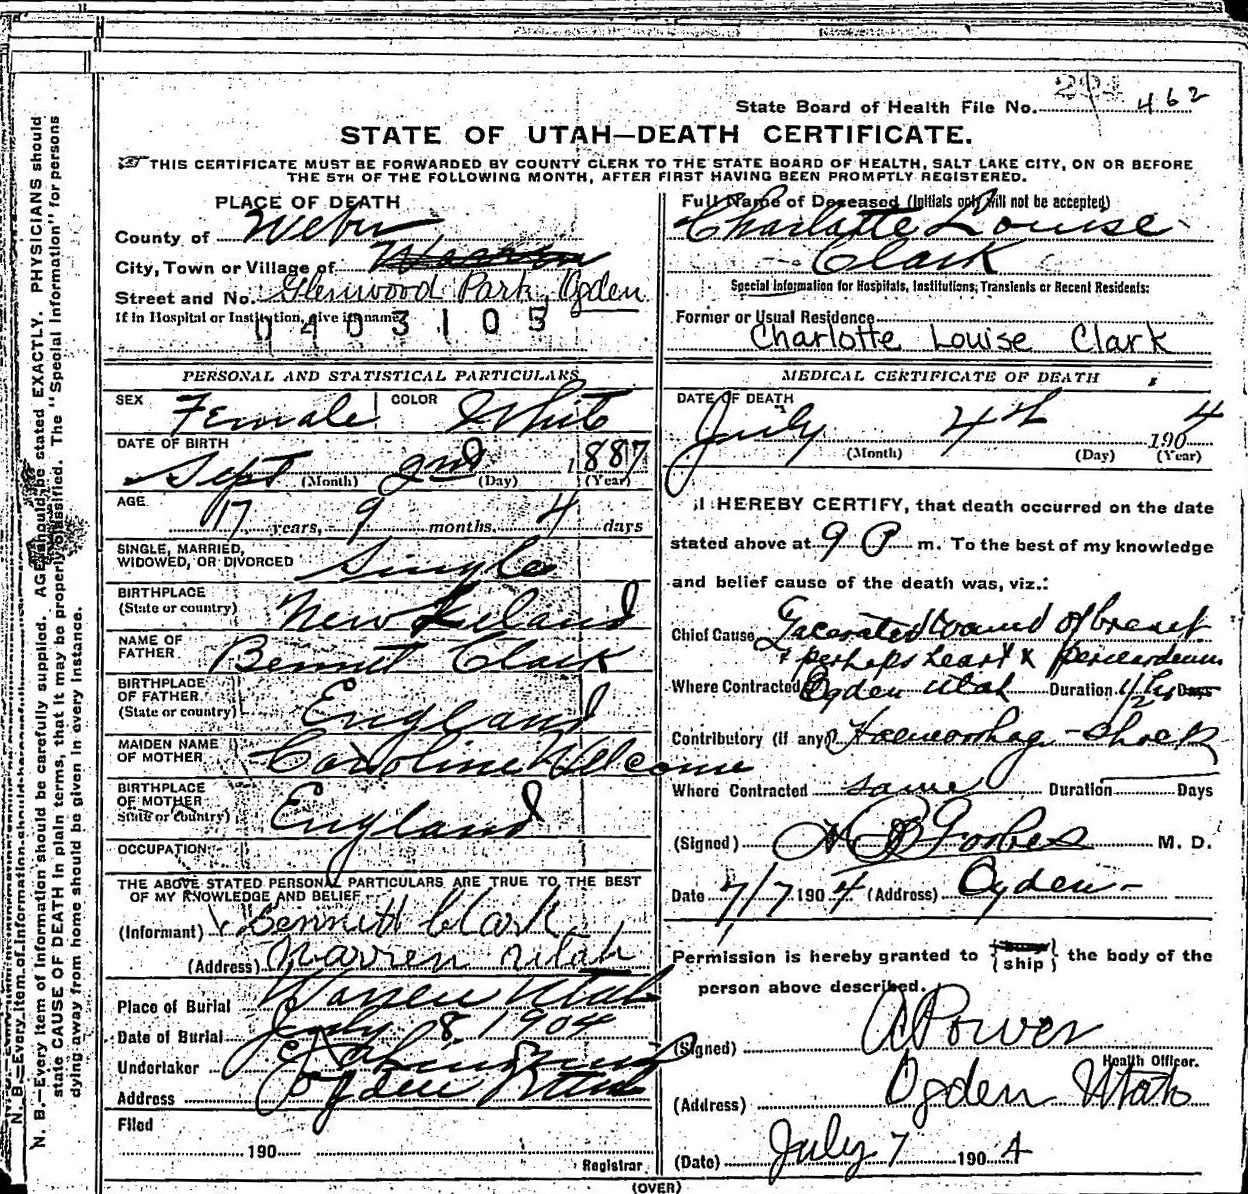 State Board of Health File No. 462
STATE OF UTAH—DEATH CERTIFICATE.
THIS CERTIFICATE MUST BE FORWARDED BY COUNTY CLERK TO THE STATE BOARD OF HEALTH, SALT LAKE CITY, ON OR BEFORE
THE 5TH OF THE FOLLOWING MONTH, AFTER FIRST HAVING BEEN PROMPTLY REGISTERED.
PLACE OF DEATH
County of Weber
City, Town or Village of Warren
Street and No. Glenwood Park, Ogden
If in Hospital or Institution, give its name
0403105
Full Name of Deceased (Initials only will not be accepted)
Charlotte Louise
Clark
Special Information for Hospitals, Institutions, Transients or Recent Residents:
Former or Usual Residence
Charlotte Louise Clark
PERSONAL AND STATISTICAL PARTICULARS
SEX Female COLOR White
DATE OF BIRTH
Sept (Month) 2nd (Day) 1887 (Year)
AGE
17 years, 9 months, 4 days
SINGLE, MARRIED,
WIDOWED, OR DIVORCED Single
BIRTHPLACE
(State or country) New Zeland
NAME OF
FATHER Bennit Clark
BIRTHPLACE
OF FATHER
(State or country) England
MAIDEN NAME
OF MOTHER Caroline Welcome
BIRTHPLACE
OF MOTHER
State or country) England
OCCUPATION
THE ABOVE STATED PERSONAL PARTICULARS ARE TRUE TO THE BEST
OF MY KNOWLEDGE AND BELIEF
(Informant) Bennett Clark
(Address) Warren Utah
Place of Burial Warren Utah
Date of Burial July 8 1904
Undertaker
Address Ogden Utah
Filed
190
Registrar
MEDICAL CERTIFICATE OF DEATH
DATE OF DEATH
July 4th 1904
(Month) (Day) (Year)
I HEREBY CERTIFY, that death occurred on the date
stated above at 9 P m. To the best of my knowledge
and belief cause of the death was, viz.:
Chief Cause Lacerated wound of breast
& perhaps heart & pericardium
Where Contracted Ogden Utah Duration 1/2 hr Days
Contributory (if any) Haemorrhage - Shock
Where Contracted same Duration Days
(Signed) H B Forbes M. D.
Date 7/7 1904 (Address) Ogden -
Permission is hereby granted to ship the body of the
person above described.
(Signed) A Power
Health Officer.
(Address) Ogden Utah
(Date) July 7 1904
(OVER)
N. B.—Every item of information should be carefully supplied. AGE should be stated EXACTLY. PHYSICIANS should
state CAUSE OF DEATH in plain terms, that it may be properly classified. The "Special Information" for persons
dying away from home should be given in every instance.